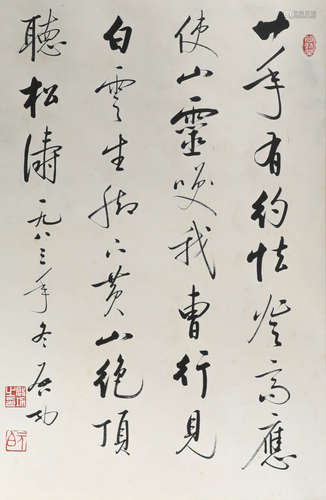 廿年有約怯登高應
使山靈笑我曹行見
白雲生腳下黃山絕頂
聽松濤一九八三年冬啟功